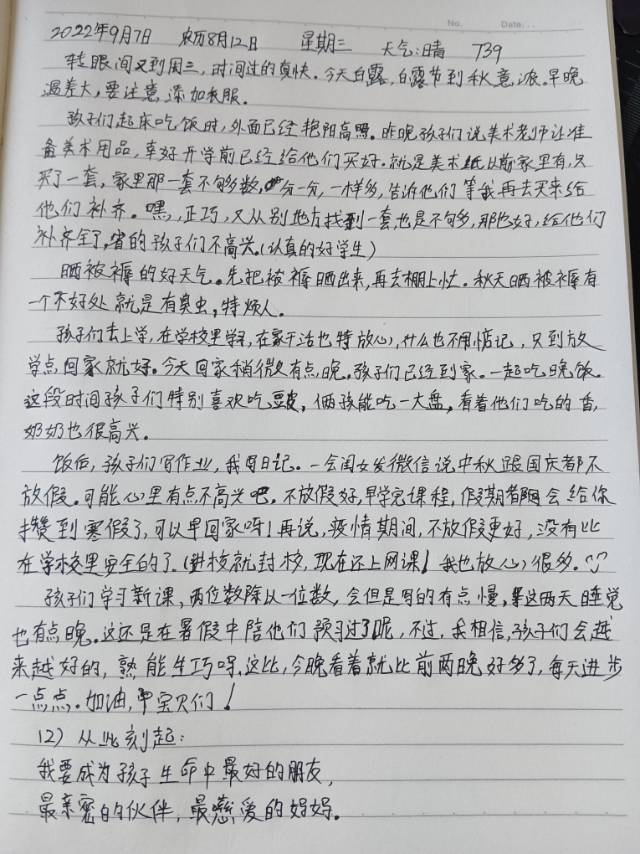 No. Date.
2022年9月7日 农历8月12日 星期三 天气:晴 739
转眼间又到周三,时间过的真快。今天白露,白露节到秋意浓。早晚
温差大,要注意添加衣服。
孩子们起床吃饭时,外面已经艳阳高照。昨晚孩子们说美术老师让准
备美术用品,幸好开学前已经给他们买好。就是美术纸以前家里有,只
买了一套,家里那一套不够数,分一分,一样多,告诉他们等我再去买来给
他们补齐。嘿,正巧,又从别地方找到一套也是不够多,那也好,给他们
补齐全了,省的孩子们不高兴。(认真的好学生)
晒被褥的好天气。先把被褥晒出来,再去棚上忙。秋天晒被褥有
一个不好处就是有臭虫,特烦人。
孩子们去上学,在学校里学习,在家干活也特放心,什么也不用惦记,只到放
学点回家就好。今天回家稍微有点晚。孩子们已经到家。一起吃晚饭。
这段时间孩子们特别喜欢吃豆皮,俩孩能吃一大盘,看着他们吃的香,
奶奶也很高兴。
饭后,孩子们写作业,我写日记。一会闺女发微信说中秋跟国庆都不
放假。可能心里有点不高兴吧。不放假好,早学完课程,假期都会给你
攒到寒假了,可以早回家呀!再说,疫情期间,不放假更好,没有比
在学校里安全的了。(群校就封校,现在还上网课!我也放心很多。
孩子们学习新课,两位数除以一位数,会但是写的有点慢,这两天睡觉
也有点晚。这还是在暑假中陪他们预习过了呢,不过,我相信,孩子们会越
来越好的,熟能生巧呀,这比,今晚看着就比前两晚好多了,每天进步
一点点。加油,宝贝们!
12)从此刻起:
我要成为孩子生命中最好的朋友,
最亲密的伙伴,最慈爱的妈妈。